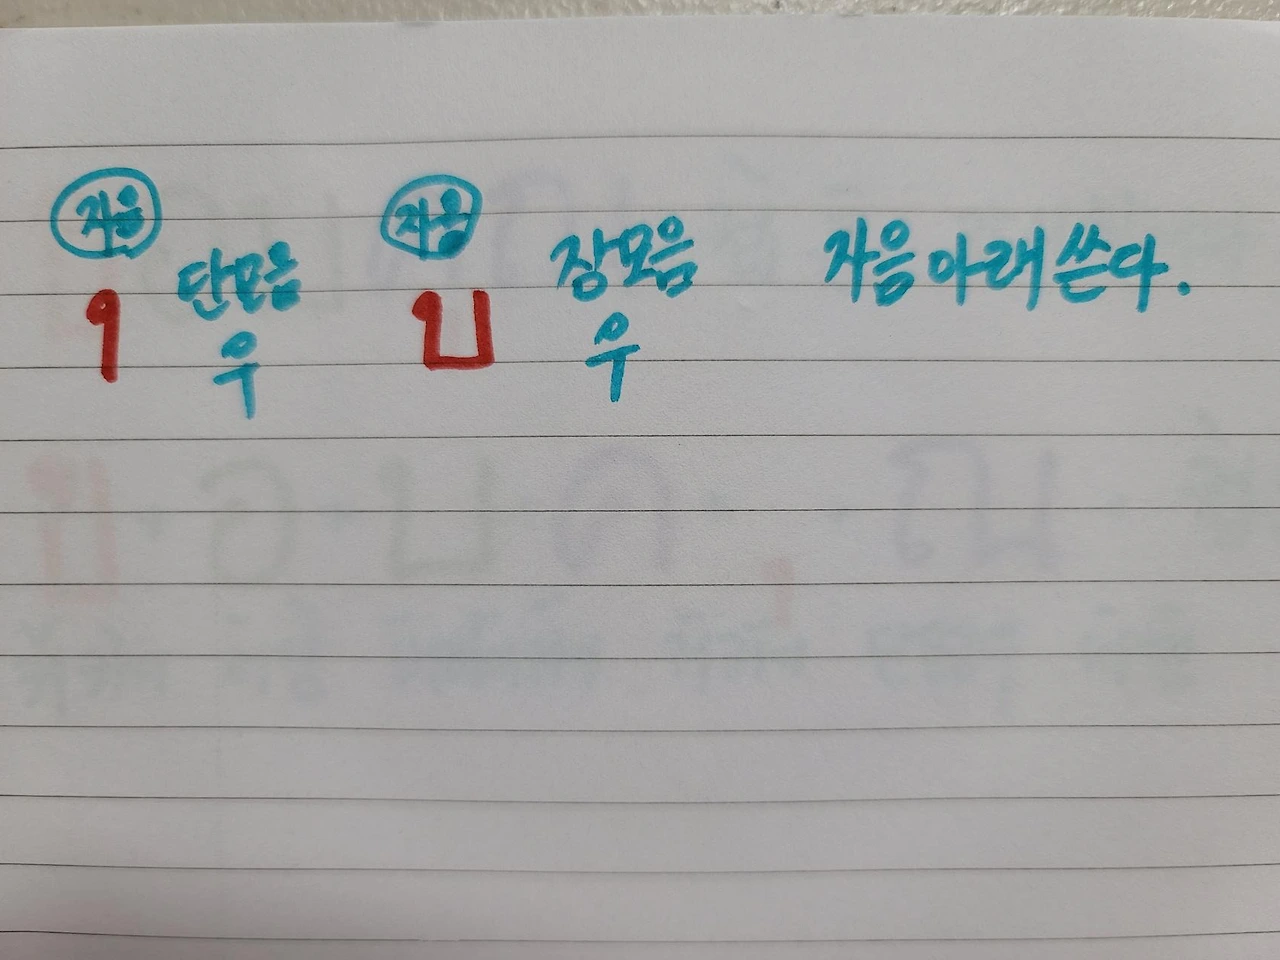 자음 자음
단모음 장모음 자음 아래 쓴다.
ุ 우 ู 우